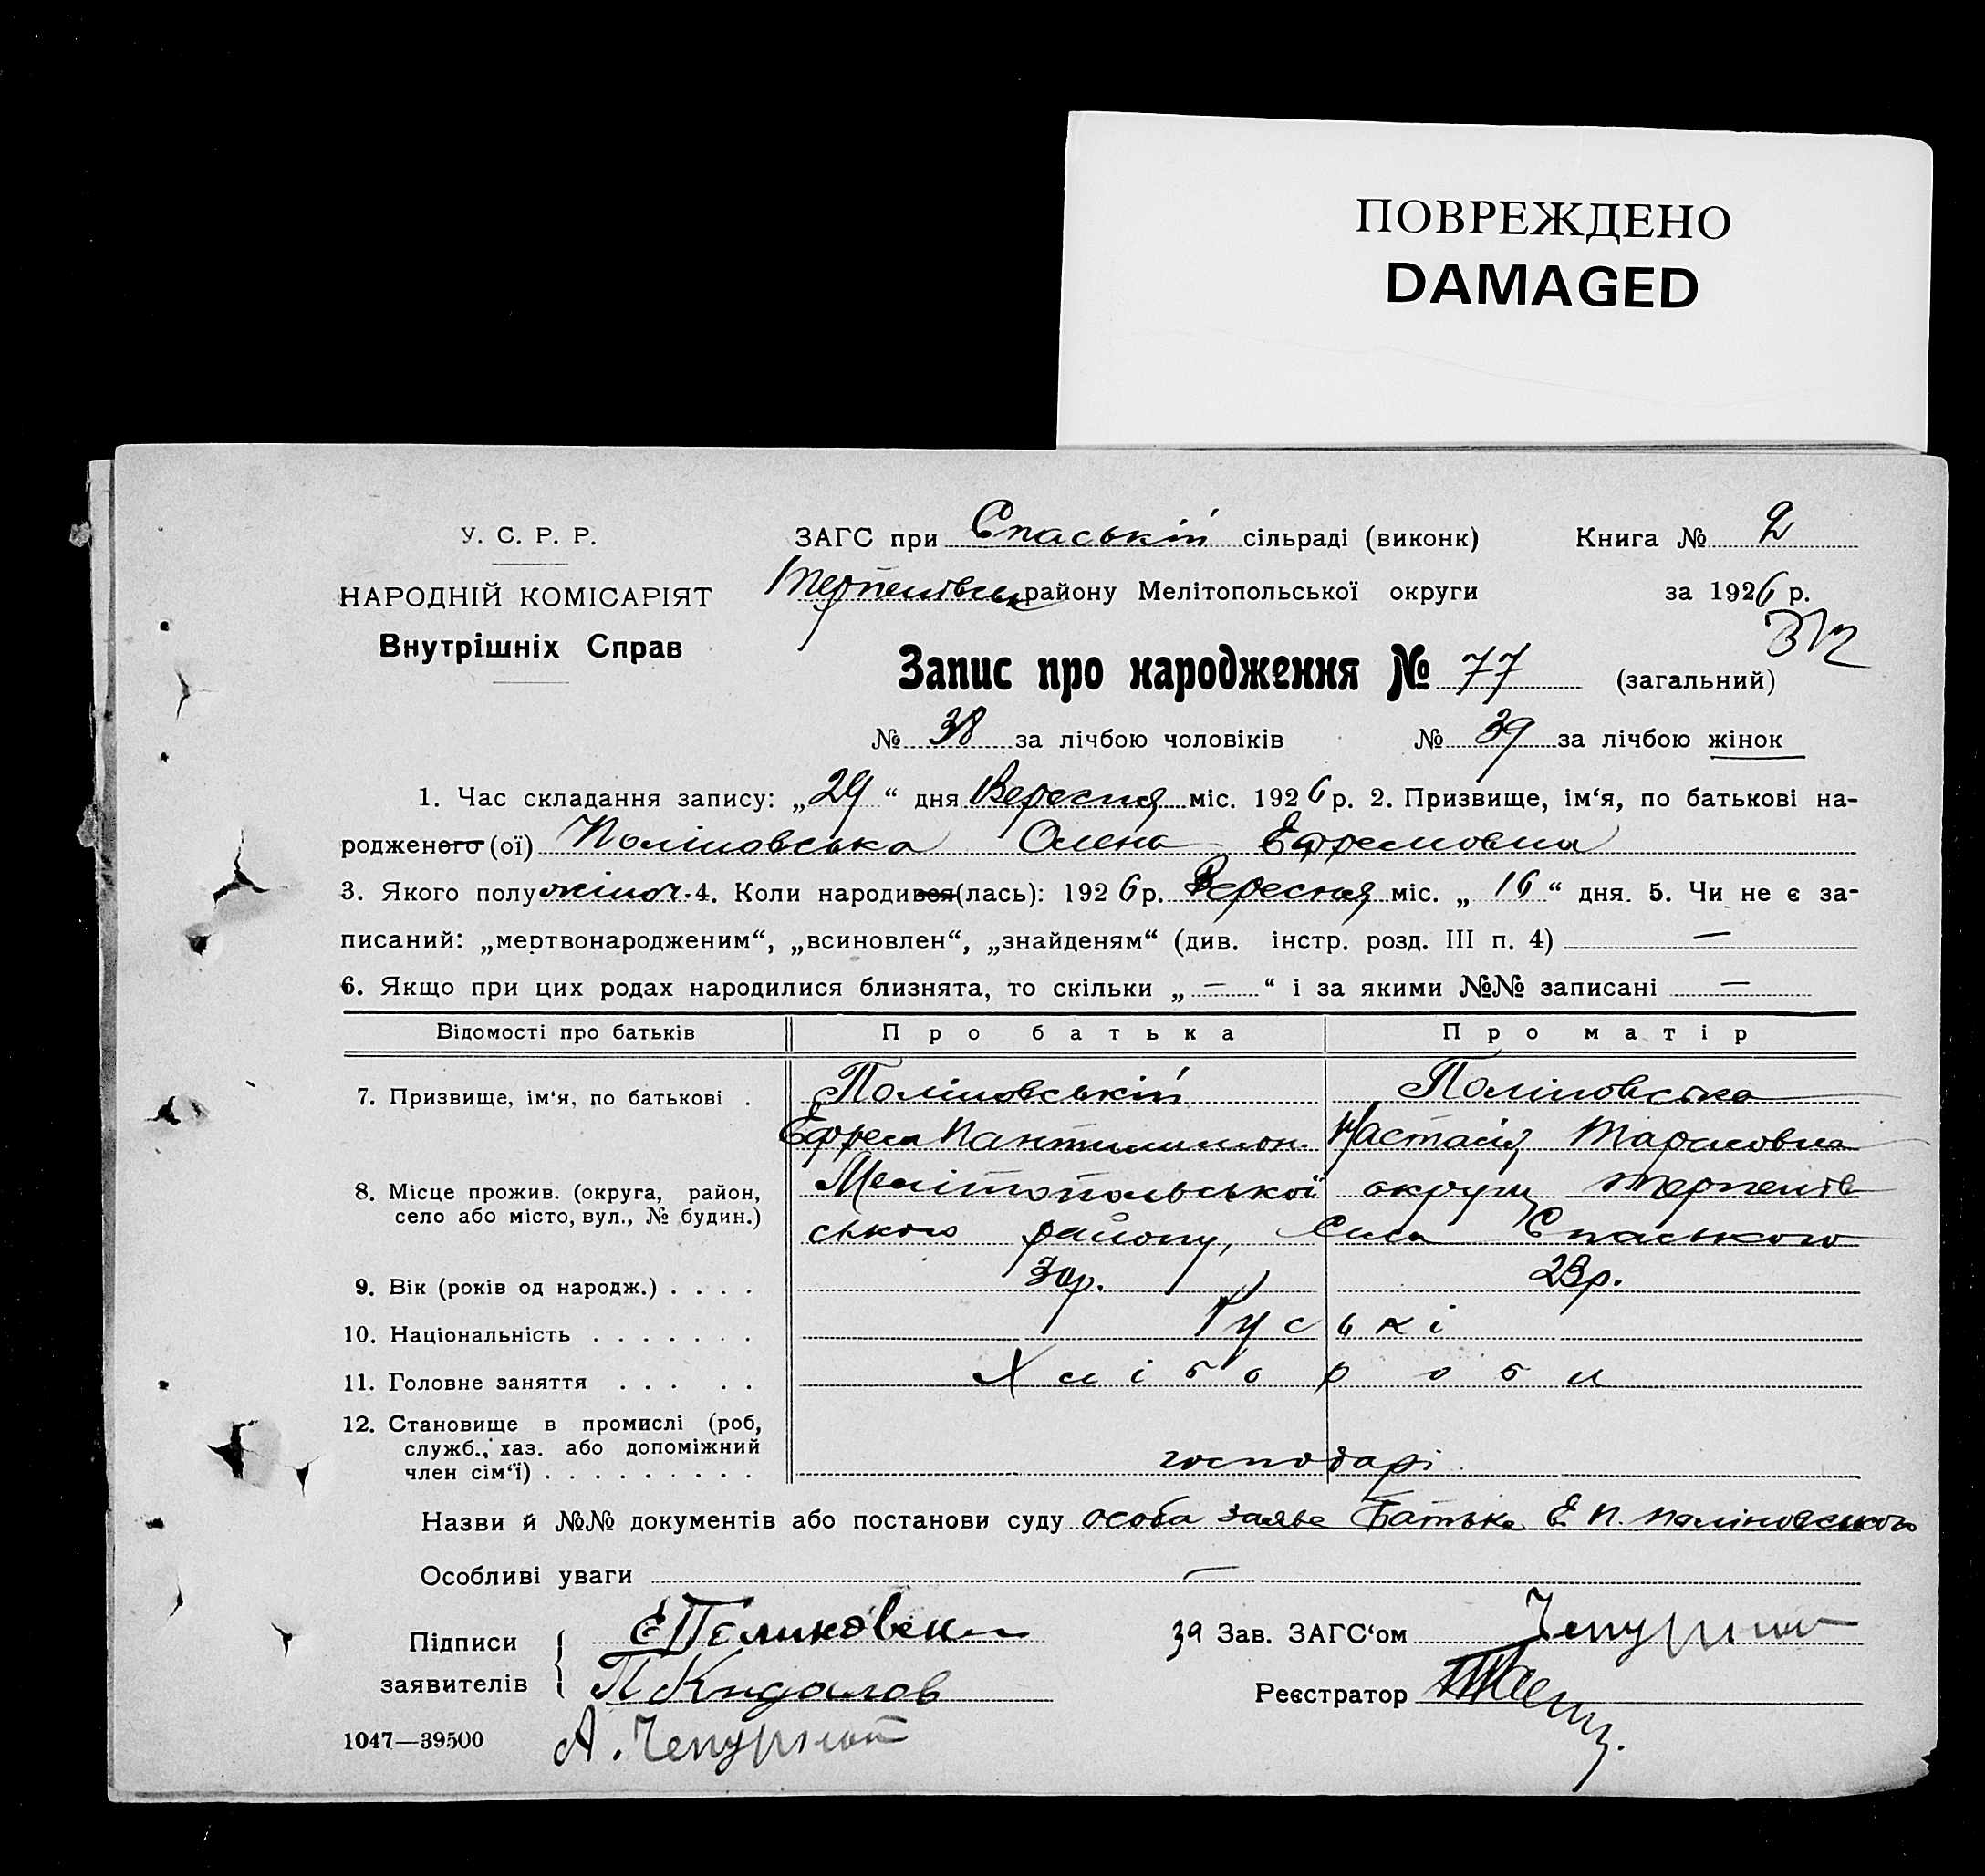 ПОВРЕЖДЕНО
DAMAGED
У. С. Р. Р.
НАРОДНІЙ КОМІСАРІЯТ
Внутрішніх Справ
ЗАГС при Спаській сільраді (виконк)
Терпенівськ району Мелітопольської округи
Книга № 2
за 1926 р.
312
Запис про народження № 77 (загальний)
№ 38 за лічбою чоловіків № 39 за лічбою жінок
1. Час складання запису: „29“ дня Вересня міс. 1926 р. 2. Призвище, ім‘я, по батькові на-
родженого (ої) Поліновська Олена Ефремовна
3. Якого полу жіноч. 4. Коли народився(лась): 1926 р. Вересня міс. „16“ дня. 5. Чи не є за-
писаний: „мертвонародженим“, „всиновлен“, „знайденям“ (див. інстр. розд. III п. 4) —
6. Якщо при цих родах народилися близнята, то скільки „—“ і за якими №№ записані —
Відомості про батьків Про батька Про матір
7. Призвище, ім‘я, по батькові . Поліновській Поліновська
Ефрем Пантилимон. Настасія Тарасовна
8. Місце прожив. (округа, район, Мелітопольської округи Терпенів
село або місто, вул., № будин.) ського району, Села Спаського
9. Вік (років од народж.) . . . . 30р. 23р.
10. Національність . . . . . . . Руські
11. Головне заняття . . . . . Хлібороби
12. Становище в промислі (роб,
служб., хаз. або допоміжний
член сім‘ї) . . . . . . . . . господарі
Назви й №№ документів або постанови суду особа заява Батька Е. П. Поліновського
Особливі уваги —
Підписи
заявителів
П Кидалов
А. Чепурной
за Зав. ЗАГС‘ом Чепурной
Реєстратор
1047—39500